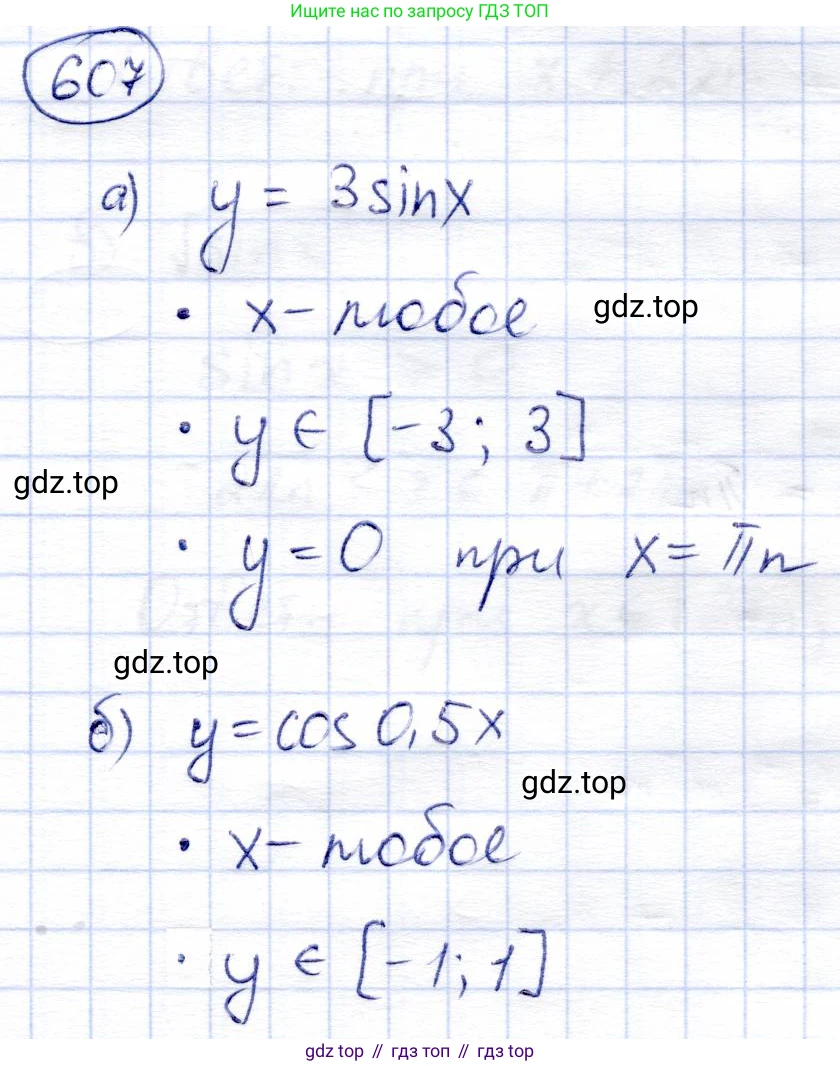 Ищите нас по запросу ГДЗ ТОП
607
а) y = 3 sin x
• x - любое
gdz.top
• y ∈ [-3; 3]
gdz.top
• y = 0 при x = πn
gdz.top
б) y = cos 0,5x
gdz.top
• x - любое
• y ∈ [-1; 1]
gdz top // гдз топ // гдз top